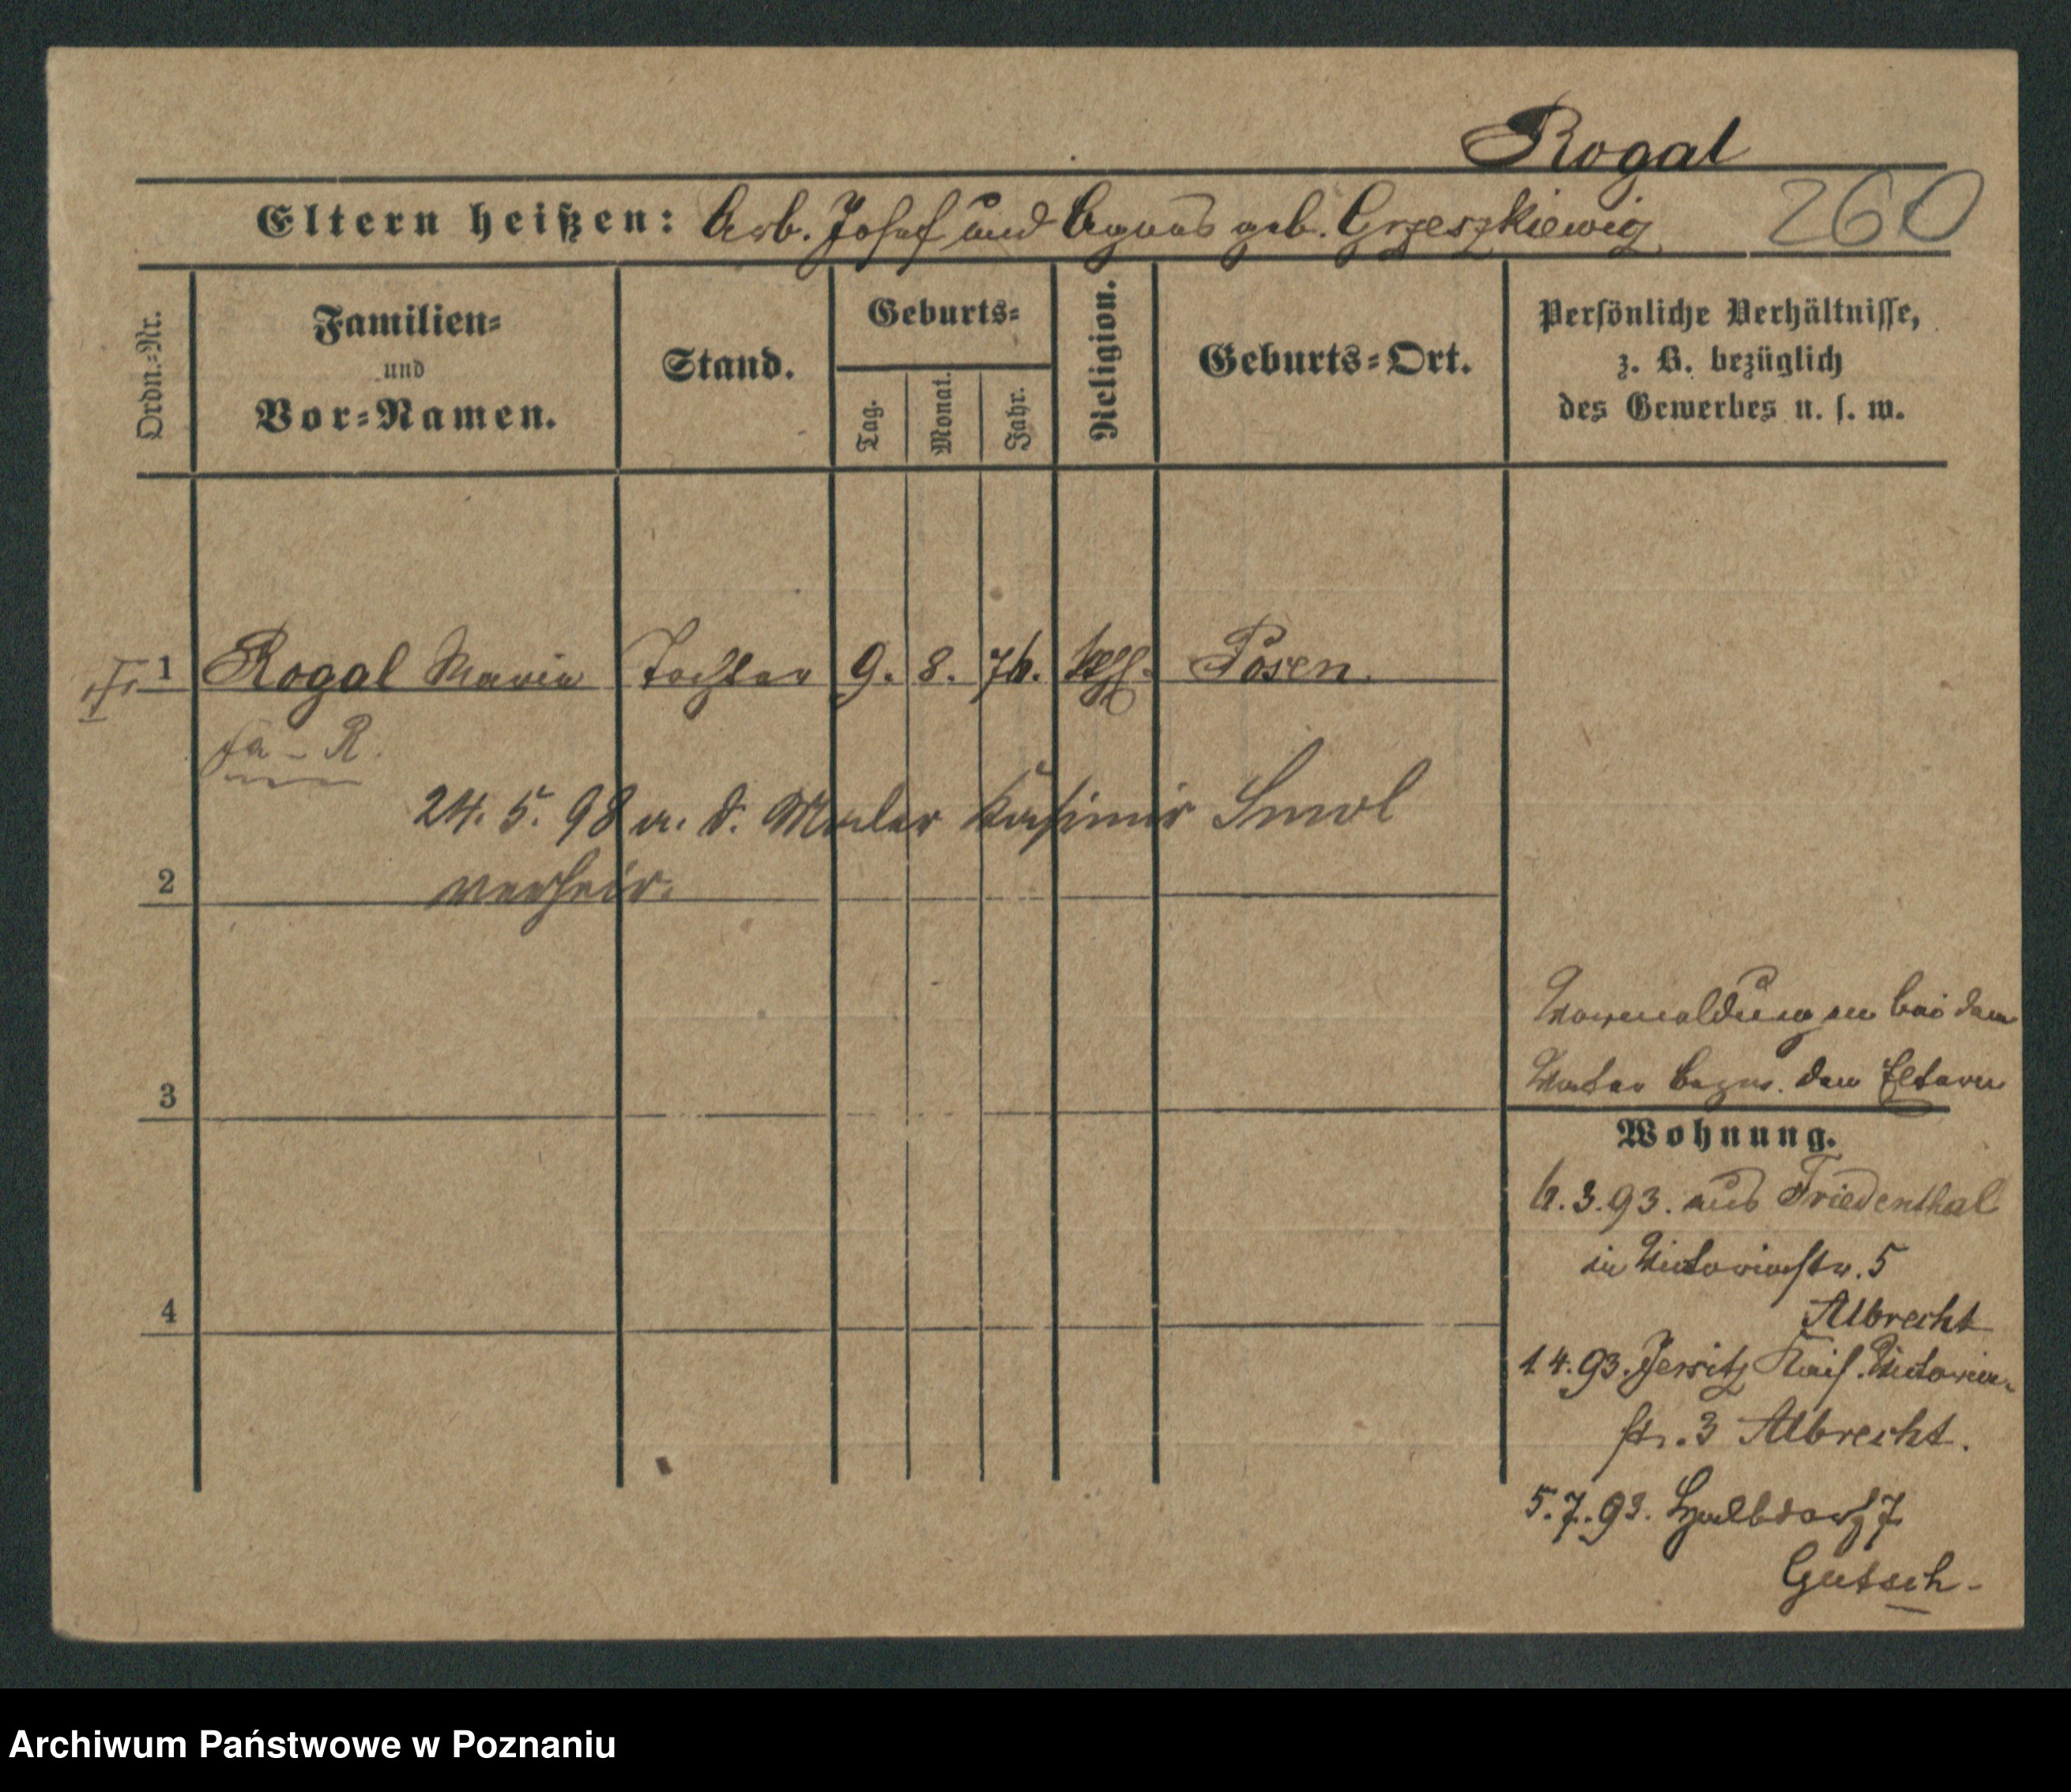 Rogal
Eltern heißen: Arb. Josef und Agnes geb. Grzeszkiewiz
260
Ordn.=Nr.
Familien=
und
Vor=Namen.
Stand.
Geburts=
Tag.
Monat.
Jahr.
Religion.
Geburts=Ort.
Persönliche Verhältnisse,
z. B. bezüglich
des Gewerbes u. s. w.
1 Rogal Maria Tochter 9. 8. 76. kth. Posen.
fa - R.
24. 5. 98 m. d. Maler Kasimir Smol
2 verheir.
3
4
Vormeldungen bei dem
Vater bezw. den Eltern
Wohnung.
6.3.93. aus Friedenthal
in Victoriastr. 5
Albrecht
1.4.93. Jersitz Kais. Victoria-
str. 3 Albrecht.
5.7.93. Halbdorf 7
Gutsch-
Archiwum Państwowe w Poznaniu